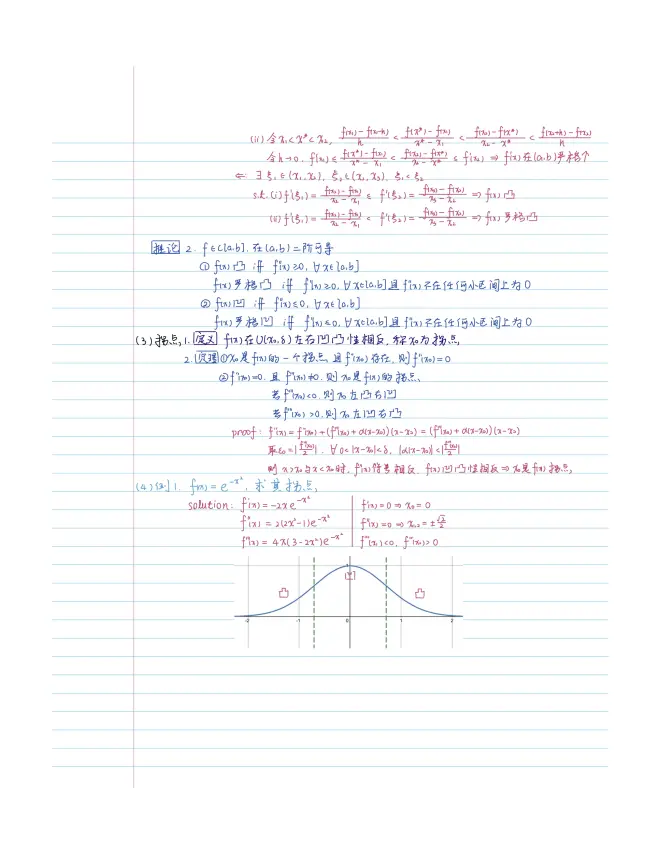 (ii) 令 x₁<x*<x₂, (f(x₁)-f(x₁-h))/h < (f(x*)-f(x₁))/(x*-x₁) < (f(x₂)-f(x*))/(x₂-x*) < (f(x₂+h)-f(x₂))/h
令 h→0, f'(x₁) ≤ (f(x*)-f(x₁))/(x*-x₁) < (f(x₂)-f(x*))/(x₂-x*) ≤ f'(x₂) ⇒ f'(x)在(a,b)严格个
⇐ ∃ ξ₁∈(x₁,x₂), ξ₂∈(x₂,x₃), ξ₁<ξ₂
s.t. (i) f'(ξ₁) = (f(x₂)-f(x₁))/(x₂-x₁) ≤ f'(ξ₂) = (f(x₃)-f(x₂))/(x₃-x₂) ⇒ f(x)凸
(ii) f'(ξ₁) = (f(x₂)-f(x₁))/(x₂-x₁) < f'(ξ₂) = (f(x₃)-f(x₂))/(x₃-x₂) ⇒ f(x)严格凸
推论 2. f∈C[a,b], 在(a,b)二阶可导
① f(x)凸 iff f''(x)≥0, ∀x∈[a,b]
f(x)严格凸 iff f''(x)≥0, ∀x∈[a,b]且f''(x)不在任何小区间上为0
② f(x)凹 iff f''(x)≤0, ∀x∈[a,b]
f(x)严格凹 iff f''(x)≤0, ∀x∈[a,b]且f''(x)不在任何小区间上为0
(3) 拐点, 1. 定义 f(x)在U(x₀,δ)左右凹凸性相反, 称x₀为拐点,
2. 定理 ① x₀是f(x)的一个拐点, 且f''(x₀)存在, 则f''(x₀)=0
② f''(x₀)=0, 且f'''(x₀)≠0, 则x₀是f(x)的拐点,
若f'''(x₀)<0, 则x₀左凸右凹
若f'''(x₀)>0, 则x₀左凹右凸
proof: f''(x) = f''(x₀)+(f'''(x₀)+α(x-x₀))(x-x₀) = (f'''(x₀)+α(x-x₀))(x-x₀)
取ε₀=|f'''(x₀)/2|, ∀ 0<|x-x₀|<δ, |α(x-x₀)|<|f'''(x₀)/2|
则 x>x₀与x<x₀时, f''(x)符号相反, f(x)凹凸性相反 ⇒ x₀是f(x)拐点,
(4) 例 1. f(x)=e^(-x²), 求其拐点,
solution: f'(x) = -2xe^(-x²) f'(x)=0 ⇒ x₀=0
f''(x) = 2(2x²-1)e^(-x²) f''(x)=0 ⇒ x₁,₂=±√2/2
f'''(x) = 4x(3-2x²)e^(-x²) f'''(x₁)<0, f'''(x₂)>0
凸 凹 凸
-2 -1 0 1 2